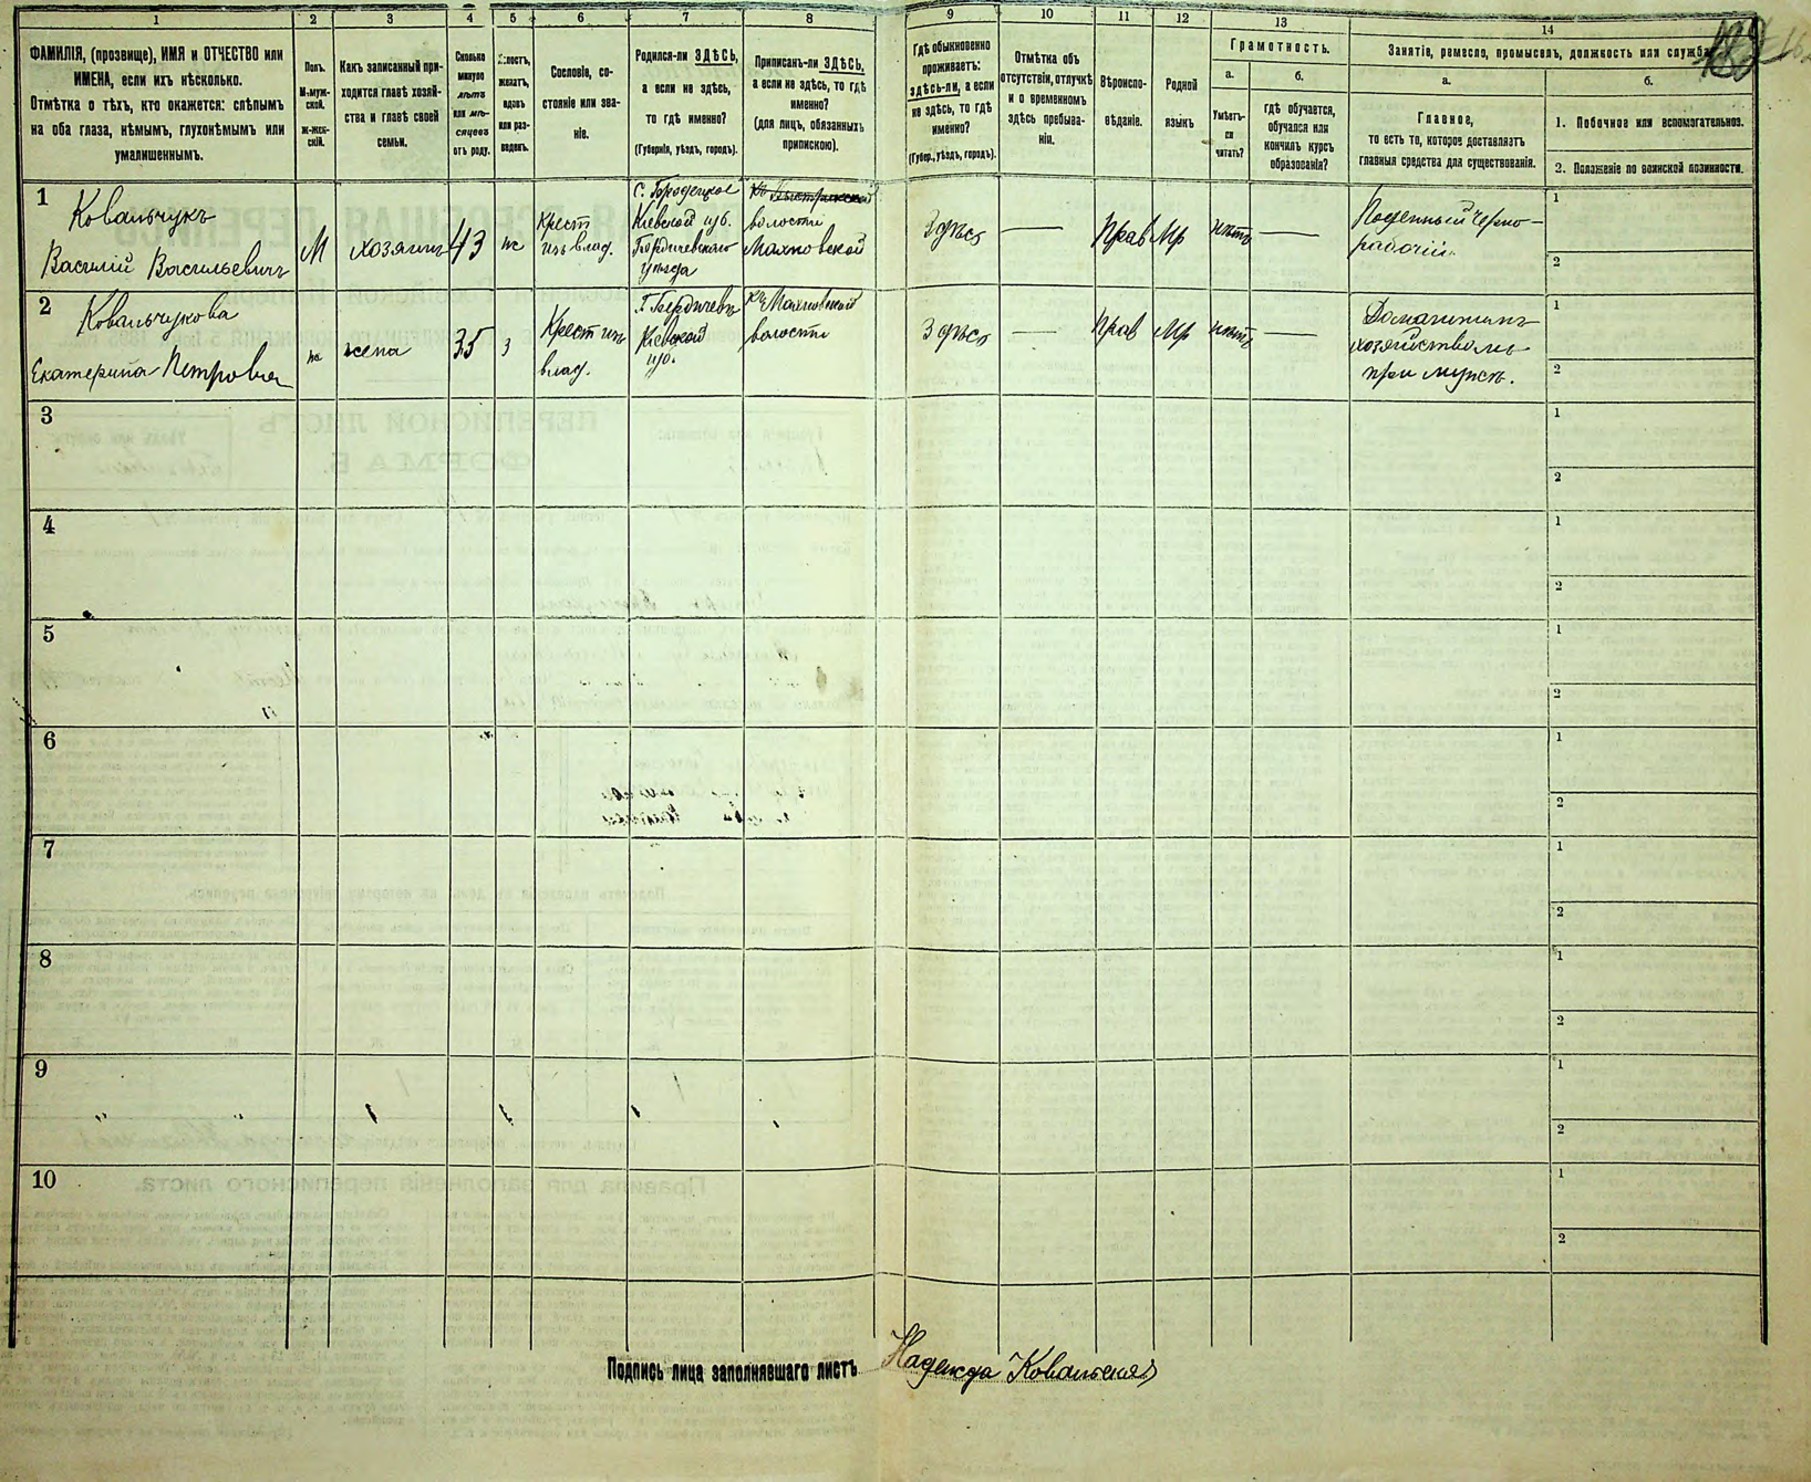 1 2 3 4 5 6 7 8 9 10 11 12 13 14
ФАМИЛІЯ, (прозвище), ИМЯ и ОТЧЕСТВО или
ИМЕНА, если ихъ нѣсколько.
Отмѣтка о тѣхъ, кто окажется: слѣпымъ
на оба глаза, нѣмымъ, глухонѣмымъ или
умалишеннымъ.
Полъ.
М-муж-
ской.
ж-жен-
скій.
Какъ записанный при-
ходится главѣ хозяй-
ства и главѣ своей
семьи.
Сколько
минуло
лѣтъ
или мѣ-
сяцевъ
отъ роду.
Холостъ,
женатъ,
вдовъ
или раз-
веденъ.
Сословіе, со-
стояніе или зва-
ніе.
Родился-ли ЗДѢСЬ,
а если не здѣсь,
то гдѣ именно?
(Губернія, уѣздъ, городъ).
Приписанъ-ли ЗДѢСЬ,
а если не здѣсь, то гдѣ
именно?
(для лицъ, обязанныхъ
припискою).
Гдѣ обыкновенно
проживаетъ:
здѣсь-ли, а если
не здѣсь, то гдѣ
именно?
(Губер., уѣздъ, городъ).
Отмѣтка объ
отсутствіи, отлучкѣ
и о временномъ
здѣсь пребыва-
ніи.
Вѣроиспо-
вѣданіе.
Родной
языкъ
Грамотность.
а.
Умѣетъ-
ли
читать?
б.
гдѣ обучается,
обучался или
кончилъ курсъ
образованія?
Занятіе, ремесло, промыселъ, должность или служба.
а.
Главное,
то есть то, которое доставляетъ
главныя средства для существованія.
б.
1. Побочное или вспомогательное.
2. Положеніе по воинской повинности.
1
Ковальчукъ
Василій Васильевичъ
М
хозяинъ
43
ж
Крест
изъ влад.
С. Городецкое
Кіевской губ.
Бердичевскаго
уѣзда
волости
Махновской
Здѣсь
—
Прав
Мр
нѣтъ
—
Поденный черно-
рабочій
1
2
2
Ковальчукова
Екатерина Петровна
ж
жена
35
з
Крест изъ
влад.
Г. Бердичевъ
Кіевской
губ.
къ Махновской
волости
Здѣсь
—
Прав
Мр
нѣтъ
—
Домашнимъ
хозяйствомъ
при мужѣ.
1
2
3
1
2
4
1
2
5
1
2
6
1
2
7
1
2
8
1
2
9
1
2
10
1
2
Подпись лица заполнявшаго листъ Надежда Ковальская